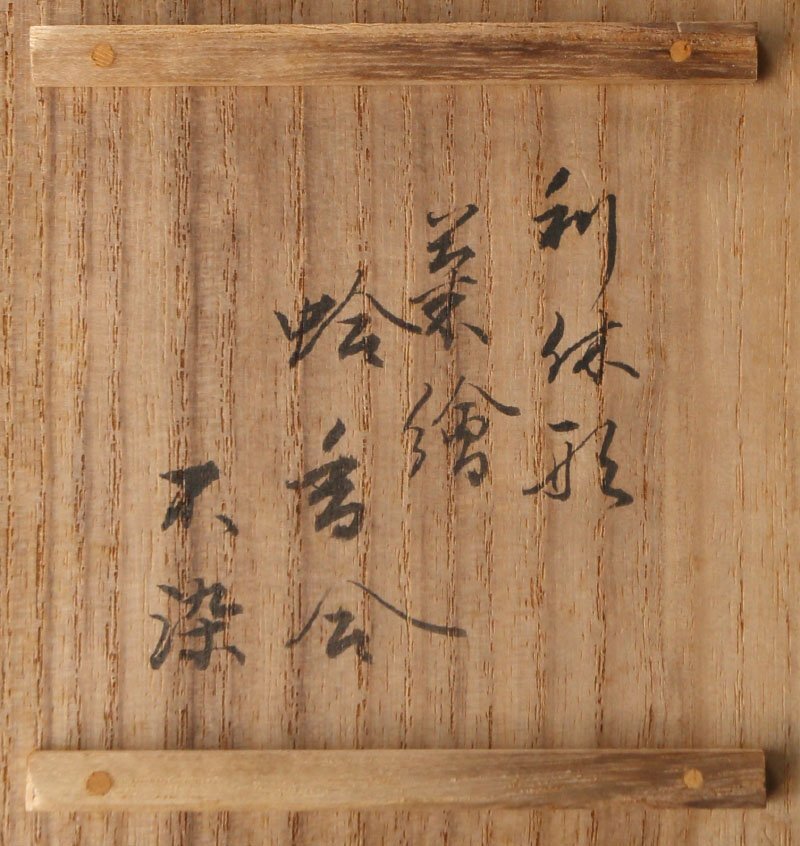 利休形
菓繪
蛤香合
不染